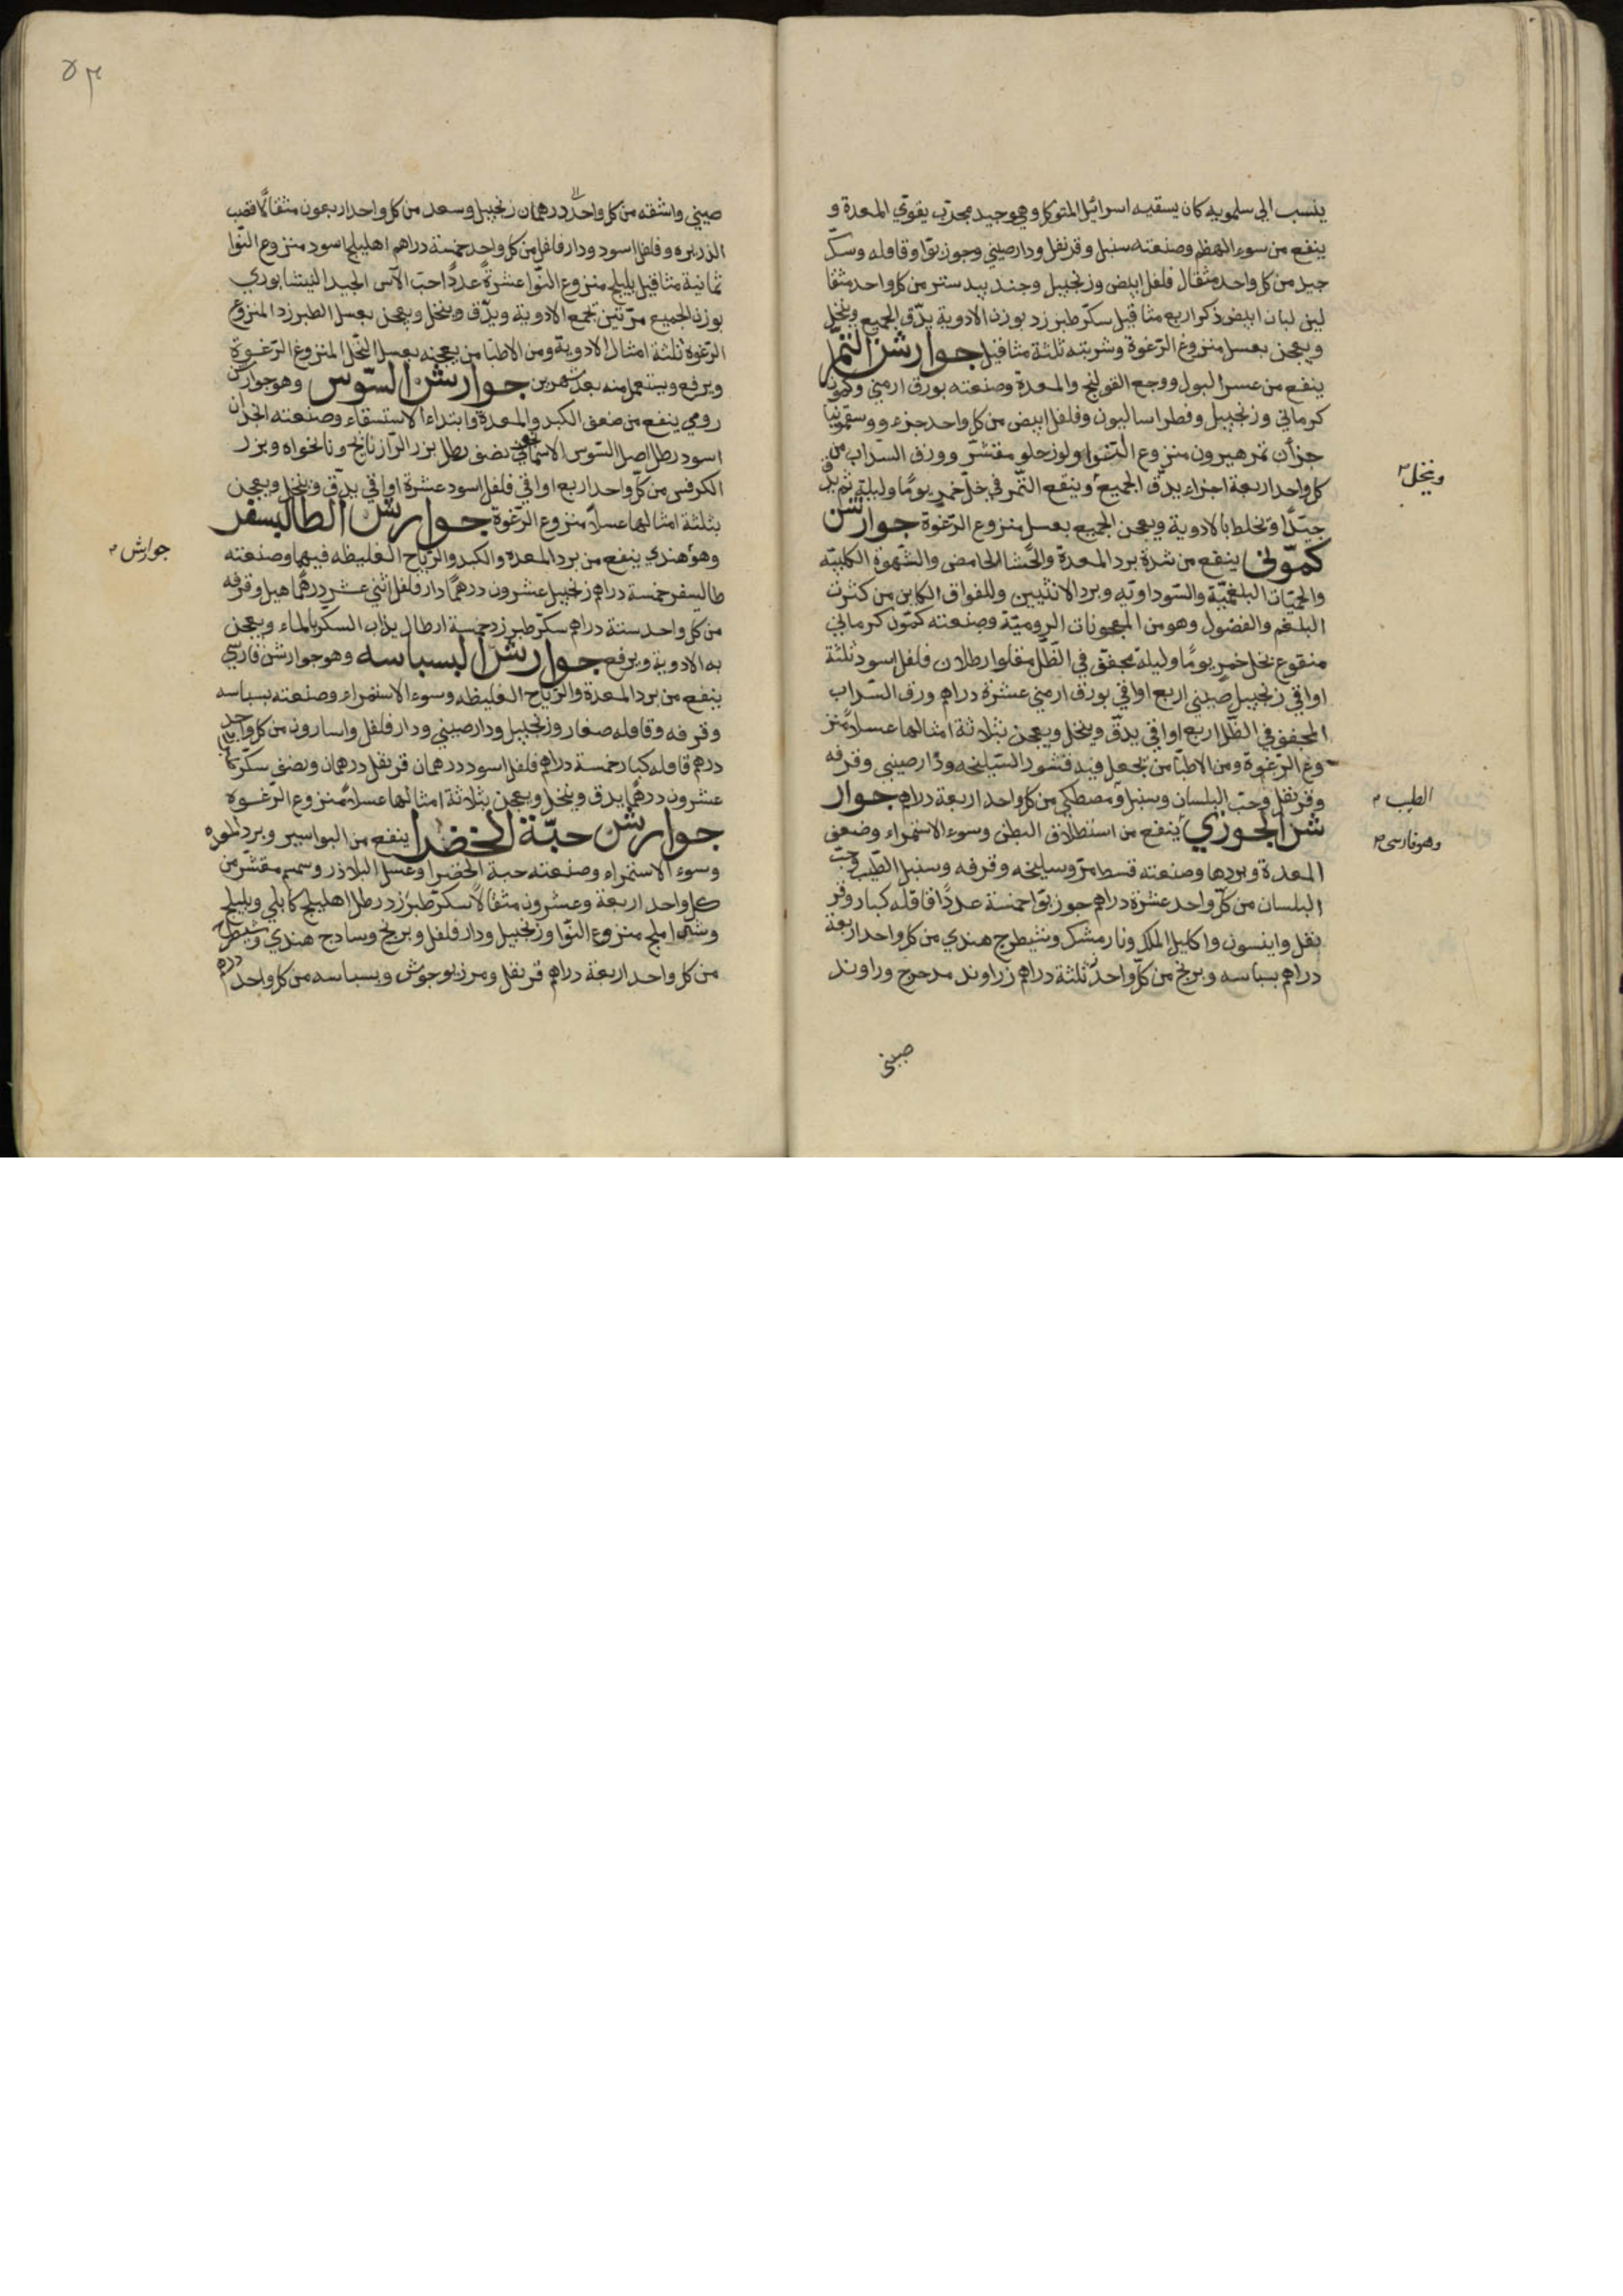 ينسب الى سلمويه كان يسقيه اسرائيل المتوكل وهو جيد مجرب يقوي المعدة و
ينفع من سوء الهظم وصنعته سنبل وقرنفل ودارصيني وجوز بوا وقاقله وسكّ
جيد من كل واحد مثقال فلفل ابيض وزنجبيل وجند بيدستر من كل واحد مثقا
لين لبان ابيض ذكر اربع مثاقيل سكّر طبرزد بوزن الادوية يدّق الجميع وينخل
ويعجن بعسل منزوع الرّغوة وشربته ثلثة مثاقيل جوارشن التّمر
ينفع من عسر البول ووجع القولنج والمعدة وصنعته بورق ارمني وكمون
كرماني وزنجبيل وفطراساليون وفلفل ابيض من كل واحد جزء ووسقمونيا
جزأن تمر هيرون منزوع النّوا ولوز حلو مقشّر وورق السّداب من
كل واحد اربعة اجزاء يدّق الجميع وينقع التّمر في خلّ خمر يومًا وليلة ثم يدق
وينخل
جيّدًا وتخلط بالادوية ويعجن الجميع بعسل منزوع الرّغوة جوارشن
كمّوني ينفع من شدة برد المعدة والجّشا الحامض والشّهوة الكلبيّه
والحميّات البلغميّة والسّوداويّه وبرد الانثيين وللفواق الكاين من كثرت
البلغم والفضول وهو من المعجونات الروميّة وصنعته كمّون كرماني
منقوع بخل خمر يومًا وليلة مجفّق في الظّل مقلوا رطلان فلفل اسود ثلثة
اواقي زنجبيل صيني اربع اواقي بورق ارمني عشرة دراهم ورق السّداب
المجفق في الظّل اربع اواقي يدقّ وينخل ويعجن بثلاثة امثالها عسلا منز
وع الرّغوة ومن الاطبّا من يجعل فيه قشور السّليخه ودارصيني وقرفه
وقرنفل وحبّ البلسان وسنبل ومصطكي من كل واحد اربعة دراهم جوار
الطيب
شن الجوزي ينفع من استطلاق البطن وسوء الاستمراء وضعف
وهو فارسى
المعدة وبردها وصنعته قسط مرّ وسليخه وقرفه وسنبل الطّيب وحبّ
البلسان من كلّ واحد عشرة دراهم جوز بوّا خمسة عددًا قاقلّه كبار وقر
نفل واينسون واكليل الملك ونارمشك وشيطرج هندي من كل واحد اربعة
دراهم بسباسه وبرنج من كلّ واحد ثلثة دراهم زراوند مدحرج وراوند
صيني
٥٣
صيني واشقه من كل واحد درهمان زنجبيل وسعد من كل واحد اربعون مثقالًا قصب
الذريره وفلفل اسود ودارفلفل من كل واحد خمسة دراهم اهليلج اسود منزوع النّوا
ثمانية مثاقيل بليلج منزوع النّوا عشرة عددًا حبّ الآس الجيد النيشابوري
بوزن الجميع مرّتين تجمع الادوية ويدّق وينخل ويعجن بعسل الطبرزد المنزوع
الرّغوة ثلثة امثال الادوية ومن الاطبّا من يعجنه بعسل النّحل المنزوع الرّغوة
ويرفع ويستعمل منه بعد شهرين جوارشن السّوس وهو جوارشن
رومي ينفع من ضعق الكبد والمعدة وابتداء الاستسقاء وصنعته
اسود رطل اصل السّوس نصف رطل بزر الرّازيانج ونانخواه وبزر
الكرفس من كلّ واحد اربع اواقي فلفل اسود عشرة اواقي يدّق وينخل ويعجن
بثلثة امثالها عسلاً منزوع الرّغوة جوارشن الطاليسفر
جوارش
وهو هندي ينفع من برد المعده والكبد والرّياح الغليظه فيهما وصنعته
طاليسفر خمسة دراهم زنجبيل عشرون درهمًا دارفلفل اثني عشر درهمًا هيل وقرفه
من كل واحد ستة دراهم سكّر طبرزد خمسة ارطال يذاب السكّر بالماء ويعجن
به الادوية ويرفع جوارشن البسباسه وهو جوارشن فارسي
ينفع من برد المعدة والرّياح الغليظه وسوء الاستمراء وصنعته بسباسه
وقرفه وقاقله صغار وزنجبيل ودارصيني ودارفلفل واسارون من كل واحد
درهم قاقله كبار خمسة دراهم فلفل اسود درهمان قرنفل درهمان ونصف سكّر
عشرون درهمًا يدق وينخل ويعجن بثلاثة امثالها عسلاً منزوع الرّغوه
جوارشن حبّة الخضرا ينفع من البواسير وبرد المعده
وسوء الاستمراء وصنعته حبة الخضرا وعسل البلاذر وسمسم مقشّر من
كل واحد اربعة وعشرون مثقالًا سكّر طبرزد رطل اهليلج كابلي وبليلج
وشير املج منزوع النّوا وزنجبيل ودارفلفل وبرنج وسادج هندي وشيطرج
من كل واحد اربعة دراهم قرنفل ومرزبوجوش وبسباسه من كل واحد درهم